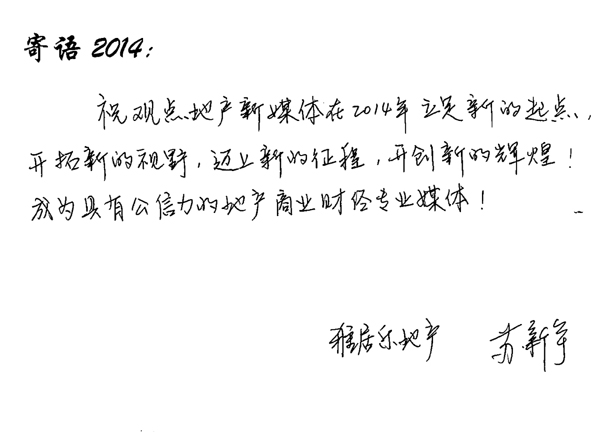 寄语 2014:
祝观点地产新媒体在2014年立足新的起点,
开拓新的视野,迈上新的征程,开创新的辉煌!
成为具有公信力的地产商业财经专业媒体!
雅居乐地产 苏新